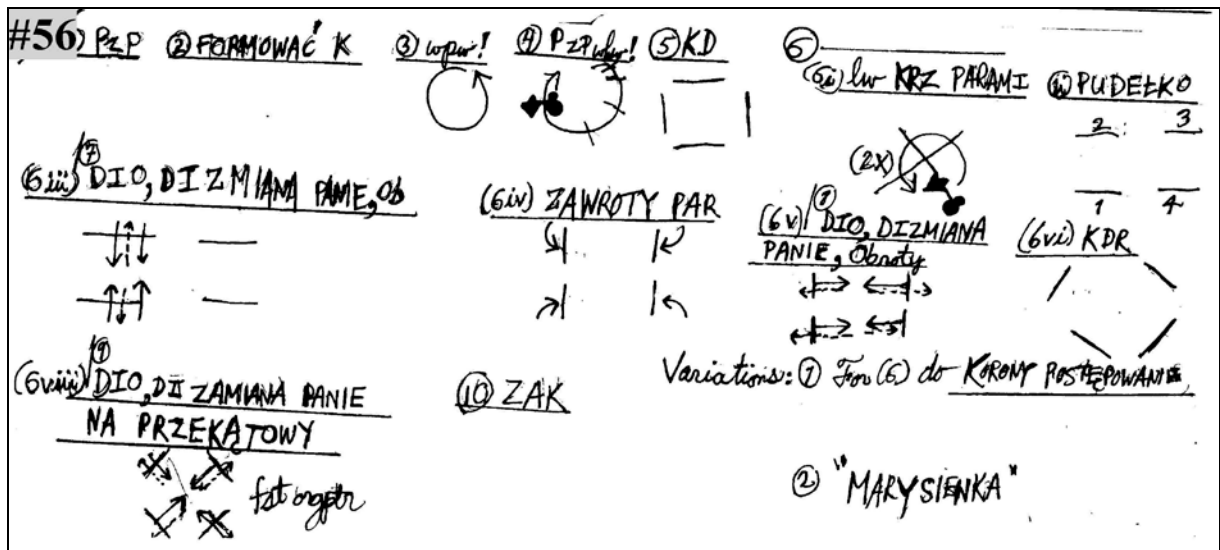 #56) PzP ② FORMOWAĆ K ③ wpw! ④ PzP ⑤ KD ⑥
(6i) lw KRZ PARAMI ⓘⓘ PUDEŁKO
2 3
(2X)
1 4
(6iii) ⑦ DIO, DI ZMIANA PANIE, Ob
(6iv) ZAWROTY PAR
(6v) DIO, DI ZMIANA
PANIE, Obroty
(6vi) KDR
(6viii) ⑨ DIO, DI ZAMIANA PANIE
NA PRZEKĄTOWY
⑩ ZAK
Variations: ① For (6) do KORONY POSTĘPOWANIE
② "MARYSIENKA"